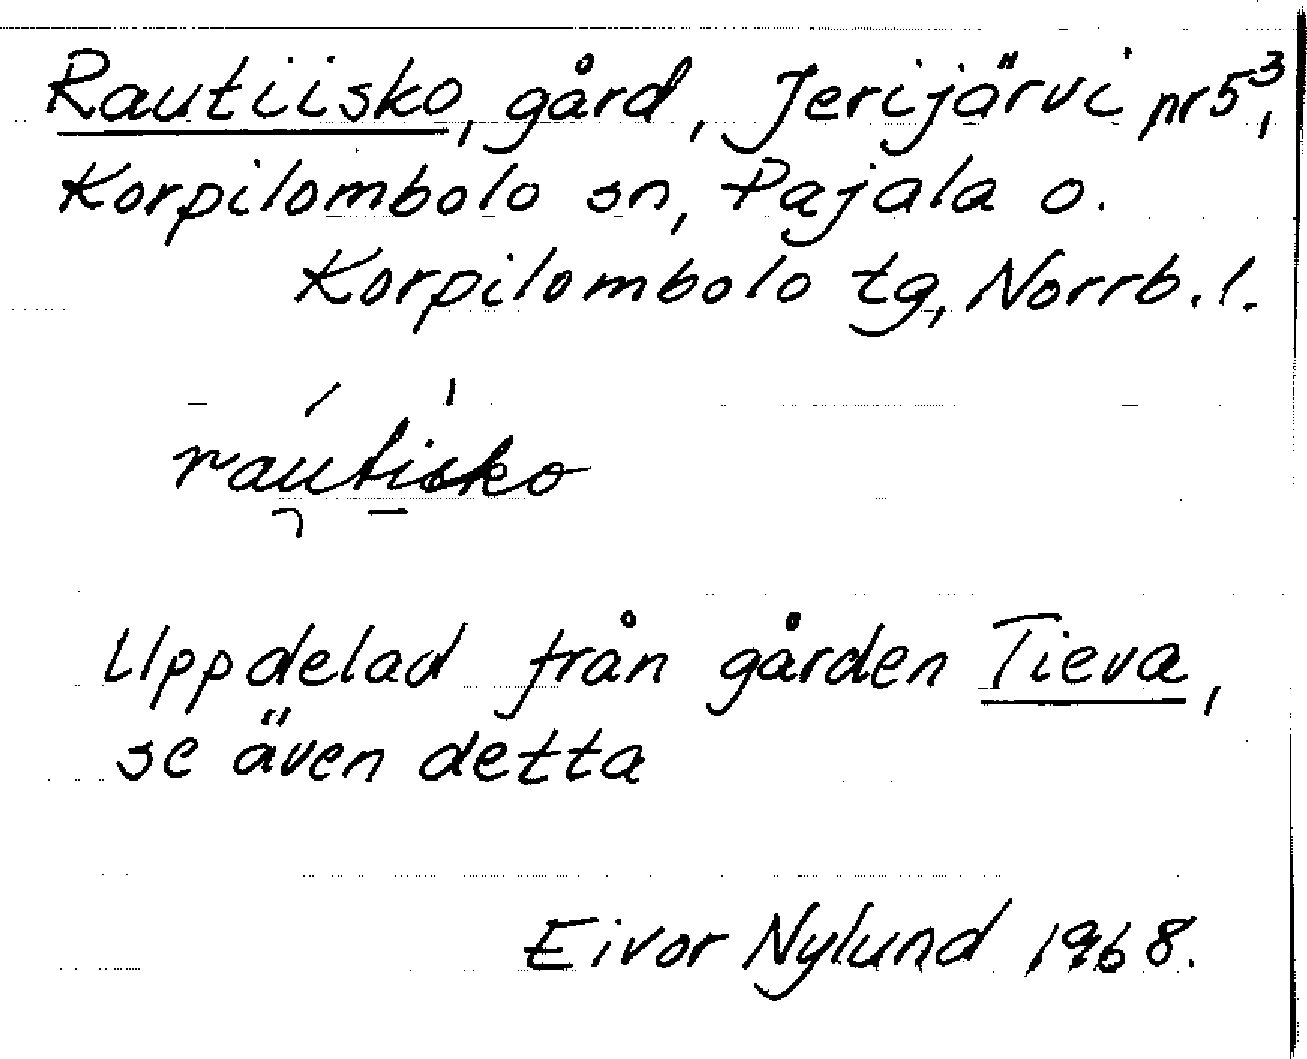 Rautiisko, gård, Jerijärvi nr 5³,
Korpilombolo sn, Pajala o.
Korpilombolo tg, Norrb. l.
rautisko
Uppdelad från gården Tieva,
se även detta
Eivor Nylund 1968.